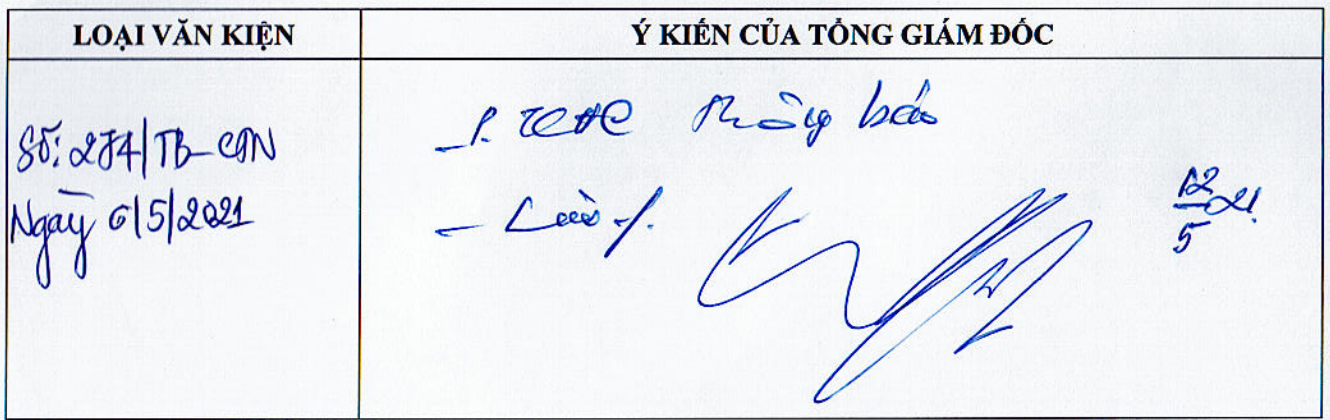 LOẠI VĂN KIỆN
Ý KIẾN CỦA TỔNG GIÁM ĐỐC
Số: 274/TB-CĐN
Ngày 6/5/2021
- P. TCHC thông báo
- Lưu ./.
12/5 21